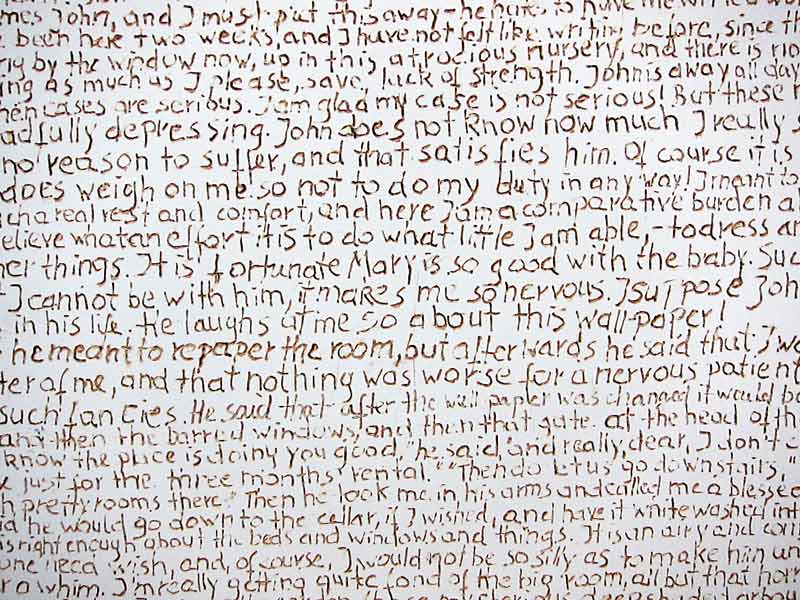 mes John, and I must put this away - he hates to have me write a wo
been here two weeks, and I have not felt like writing before, since th
by the window now, up in this atrocious nursery, and there is no
ing as much as I please, save lack of strength. John is away all day
hen cases are serious. I am glad my case is not serious! But these n
adfully depressing. John does not know how much I really s
no reason to suffer, and that satisfies him. Of course it is
does weigh on me so not to do my duty in any way! I meant to
ch a real rest and comfort, and here I am a comparative burden a
elieve what an effort it is to do what little I am able, - to dress an
her things. It is fortunate Mary is so good with the baby. Suc
I cannot be with him, it makes me so nervous. I suppose Joh
in his life. He laughs at me so about this wall-paper!
he meant to repaper the room, but afterwards he said that I we
ter of me, and that nothing was worse for a nervous patient
such fancies. He said that after the wall paper was changed it would be
and then the barred windows, and then that gate at the head of th
know the place is doing you good," he said, "and really, dear, I don't c
just for the three months' rental." "Then do let us go downstairs,"
h pretty rooms there." Then he took me in his arms and called me a blessed
id he would go down to the cellar, if I wished, and have it whitewashed int
is right enough about the beds and windows and things. It is an airy and com
one need wish, and, of course, I would not be so silly as to make him un
r a whim. I'm really getting quite fond of the big room, all but that horr